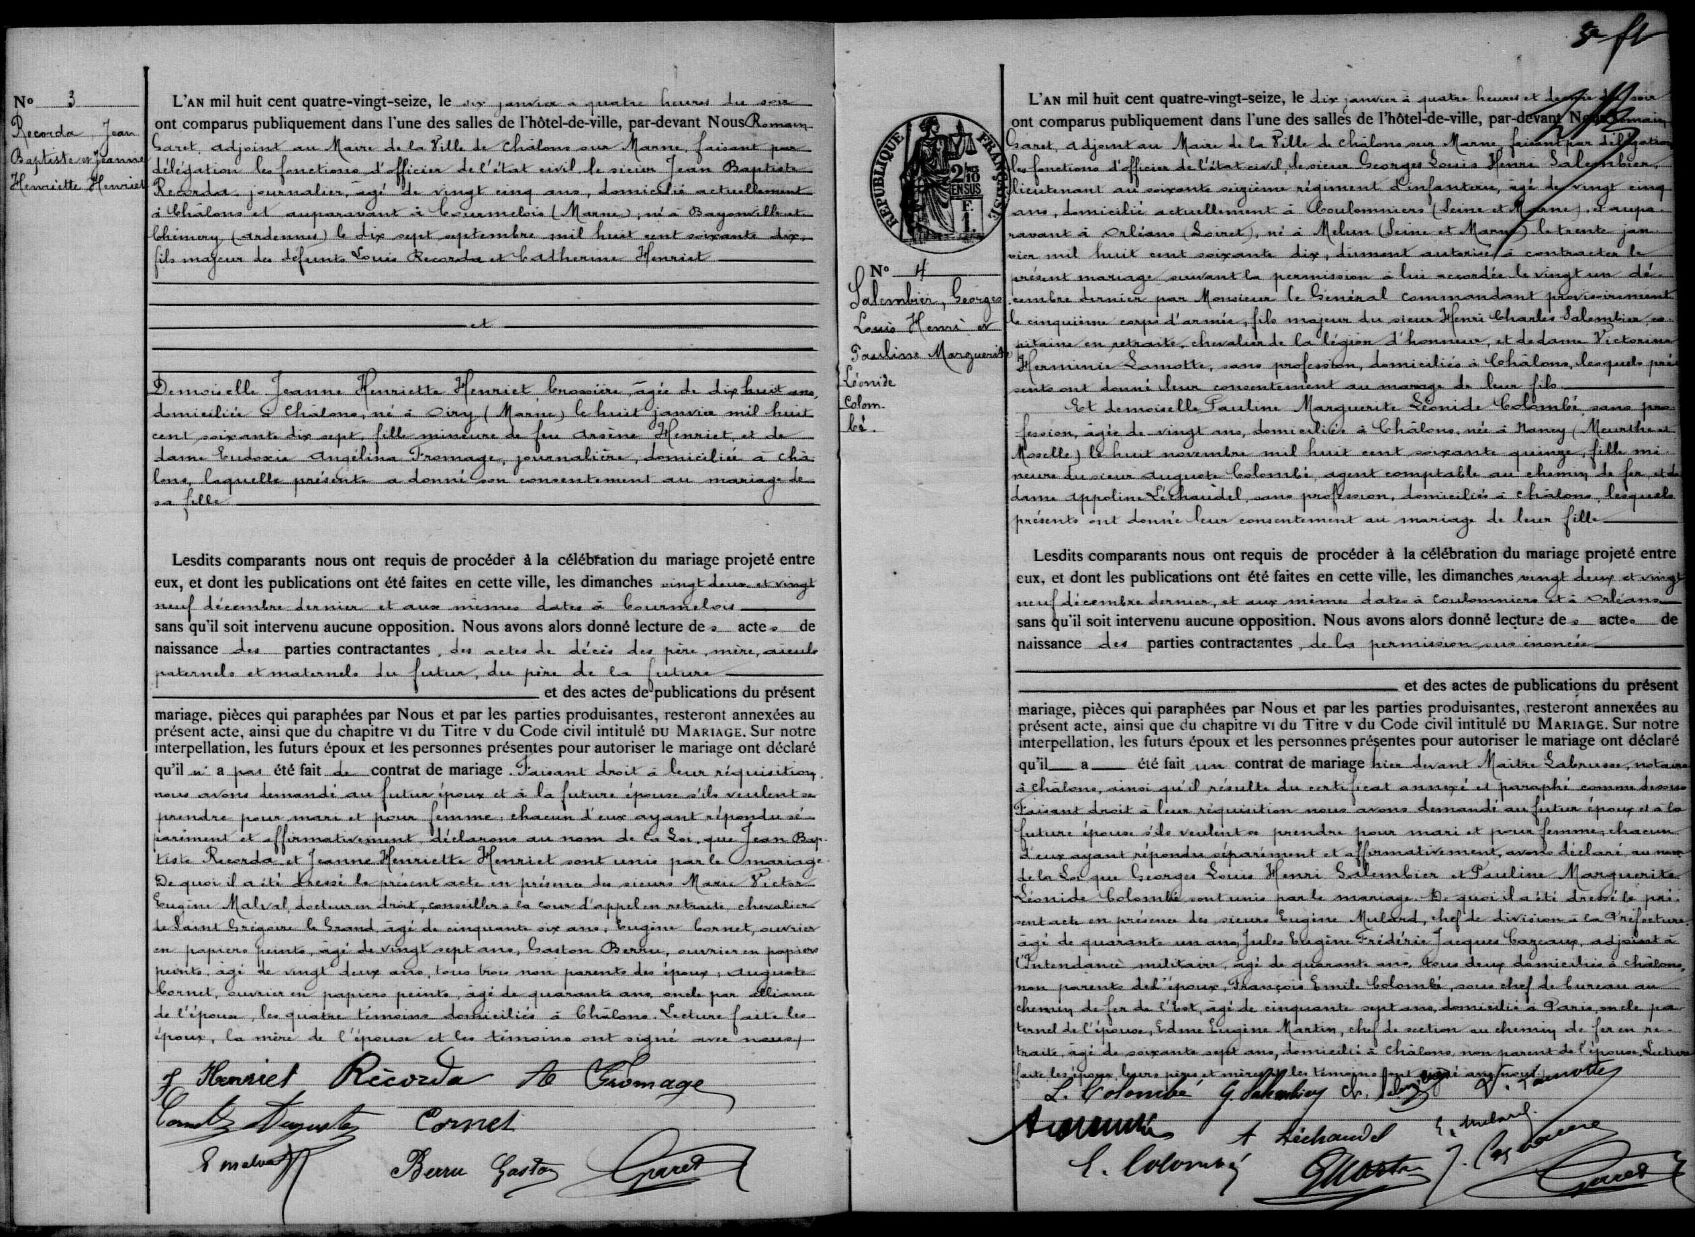 No 3
Recorda, Jean
Baptiste et Jeanne
Henriette Henriet
L'AN mil huit cent quatre-vingt-seize, le dix janvier à quatre heures du soir
ont comparus publiquement dans l'une des salles de l'hôtel-de-ville, par-devant Nous Romain
Garet, adjoint au Maire de la Ville de Châlons sur Marne, faisant par
délégation les fonctions d'officier de l'état civil le sieur Jean Baptiste
Recorda, journalier, âgé de vingt cinq ans, domicilié actuellement
à Châlons et auparavant à Courmelois (Marne), né à Bayonville et
Chémery (Ardennes) le dix sept septembre mil huit cent soixante dix,
fils majeur des défunts Louis Recorda et Catherine Henriet
et
Demoiselle Jeanne Henriette Henriet, brossière, âgée de dix huit ans,
domiciliée à Châlons, né à Oiry (Marne) le huit janvier mil huit
cent soixante dix sept, fille mineure de feu Arsène Henriet, et de
dame Eudoxie Angélina Fromage, journalière, domiciliée à Châ
lons, laquelle présente a donné son consentement au mariage de
sa fille
Lesdits comparants nous ont requis de procéder à la célébration du mariage projeté entre
eux, et dont les publications ont été faites en cette ville, les dimanches vingt deux et vingt
neuf décembre dernier et aux mêmes dates à Courmelois
sans qu'il soit intervenu aucune opposition. Nous avons alors donné lecture des actes de
naissance des parties contractantes, des actes de décès des père, mère, aïeuls
paternels et maternels du futur, du père de la future
et des actes de publications du présent
mariage, pièces qui paraphées par Nous et par les parties produisantes, resteront annexées au
présent acte, ainsi que du chapitre VI du Titre V du Code civil intitulé DU MARIAGE. Sur notre
interpellation, les futurs époux et les personnes présentes pour autoriser le mariage ont déclaré
qu'il n'a pas été fait de contrat de mariage. Faisant droit à leur réquisition,
nous avons demandé au futur époux et à la future épouse s'ils veulent se
prendre pour mari et pour femme, chacun d'eux ayant répondu sé
parément et affirmativement déclarons au nom de la Loi, que Jean Bap-
tiste Recorda et Jeanne Henriette Henriet sont unis par le mariage.
De quoi il a été dressé le présent acte en présence des sieurs Marie Victor
Eugène Malval, docteur en droit, conseiller à la cour d'appel en retraite, chevalier
de Saint Grégoire le Grand, âgé de cinquante six ans, Eugène Cornet, ouvrier
en papiers peints, âgé de vingt sept ans, Gaston Berru, ouvrier en papiers
peints, âgé de vingt deux ans, tous trois non parents des époux, Auguste
Cornet, ouvrier en papiers peints, âgé de quarante ans, oncle par alliance
de l'épouse, les quatre témoins domiciliés à Châlons. Lecture faite les
époux, la mère de l'épouse et les témoins ont signé avec nous,
J Henriet Récorda Ae Fromage
Cornet Auguste Cornet
E Malval Berru Gaston Garet
No 4
Salembier, Georges
Louis Henri et
Pauline Marguerite
Léonide
Colom-
bé.
L'AN mil huit cent quatre-vingt-seize, le dix janvier à quatre heures et demie du soir
ont comparus publiquement dans l'une des salles de l'hôtel-de-ville, par-devant Nous Romain
Garet, adjoint au Maire de la Ville de Châlons sur Marne, faisant par délégation
les fonctions d'officier de l'état civil, le sieur Georges Louis Henri Salembier,
lieutenant au soixante seizième régiment d'infanterie, âgé de vingt cinq
ans, domicilié actuellement à Coulommiers (Seine et Marne) et aupa-
ravant à Orléans (Loiret), né à Melun (Seine et Marne) le trente jan-
vier mil huit cent soixante dix, dûment autorisé à contracter le
présent mariage suivant la permission à lui accordée le vingt un dé-
cembre dernier par Monsieur le Général commandant provisoirement
le cinquième corps d'armée, fils majeur du sieur Henri Charles Salembier, ca-
pitaine en retraite, chevalier de la légion d'honneur, et de dame Victorine
Herminie Lamotte, sans profession, domiciliés à Châlons, lesquels pré
sents ont donné leur consentement au mariage de leur fils
Et demoiselle Pauline Marguerite Léonide Colombé, sans pro
fession, âgée de vingt ans, domiciliée à Châlons, née à Nancy (Meurthe et
Moselle) le huit novembre mil huit cent soixante quinze, fille mi-
neure du sieur Auguste Colombé, agent comptable au chemin de fer, et de
dame Appoline Léchaudel, sans profession, domiciliés à Châlons, lesquels
présents ont donné leur consentement au mariage de leur fille
Lesdits comparants nous ont requis de procéder à la célébration du mariage projeté entre
eux, et dont les publications ont été faites en cette ville, les dimanches vingt deux et vingt
neuf décembre dernier, et aux mêmes dates à Coulommiers et à Orléans
sans qu'il soit intervenu aucune opposition. Nous avons alors donné lecture des actes de
naissance des parties contractantes, de la permission sus énoncée
et des actes de publications du présent
mariage, pièces qui paraphées par Nous et par les parties produisantes, resteront annexées au
présent acte, ainsi que du chapitre VI du Titre V du Code civil intitulé DU MARIAGE. Sur notre
interpellation, les futurs époux et les personnes présentes pour autoriser le mariage ont déclaré
qu'il a été fait un contrat de mariage hier devant Maître Labrusse, notaire
à Châlons, ainsi qu'il résulte du certificat annexé et paraphé comme dessus
Faisant droit à leur réquisition nous avons demandé au futur époux et à la
future épouse s'ils veulent se prendre pour mari et pour femme, chacun
d'eux ayant répondu séparément et affirmativement, avons déclaré au nom
de la Loi que Georges Louis Henri Salembier et Pauline Marguerite
Léonide Colombé sont unis par le mariage. De quoi il a été dressé le pré-
sent acte en présence des sieurs Eugène Mulard, chef de division à la Préfecture,
âgé de quarante un ans, Jules Eugène Frédéric Jacques Cazeaux, adjoint à
l'Intendance militaire, âgé de quarante ans, tous deux domiciliés à Châlons,
non parents de l'époux, François Emile Colombé, sous chef de bureau au
chemin de fer de l'Est, âgé de cinquante sept ans, domicilié à Paris, oncle pa-
ternel de l'épouse, Edme Eugène Martin, chef de section au chemin de fer en re-
traite, âgé de soixante sept ans, domicilié à Châlons, non parent de l'épouse. Lecture
faite les époux, leurs pères et mères et les témoins ont signé avec nous,
L. Colombé G. Salembier Ch. Salembier V. Lamotte
A Léchaudel E. Mulard
E. Colombé EMartin J. Cazeaux Garet
RÉPUBLIQUE FRANÇAISE
2/10 EN SUS